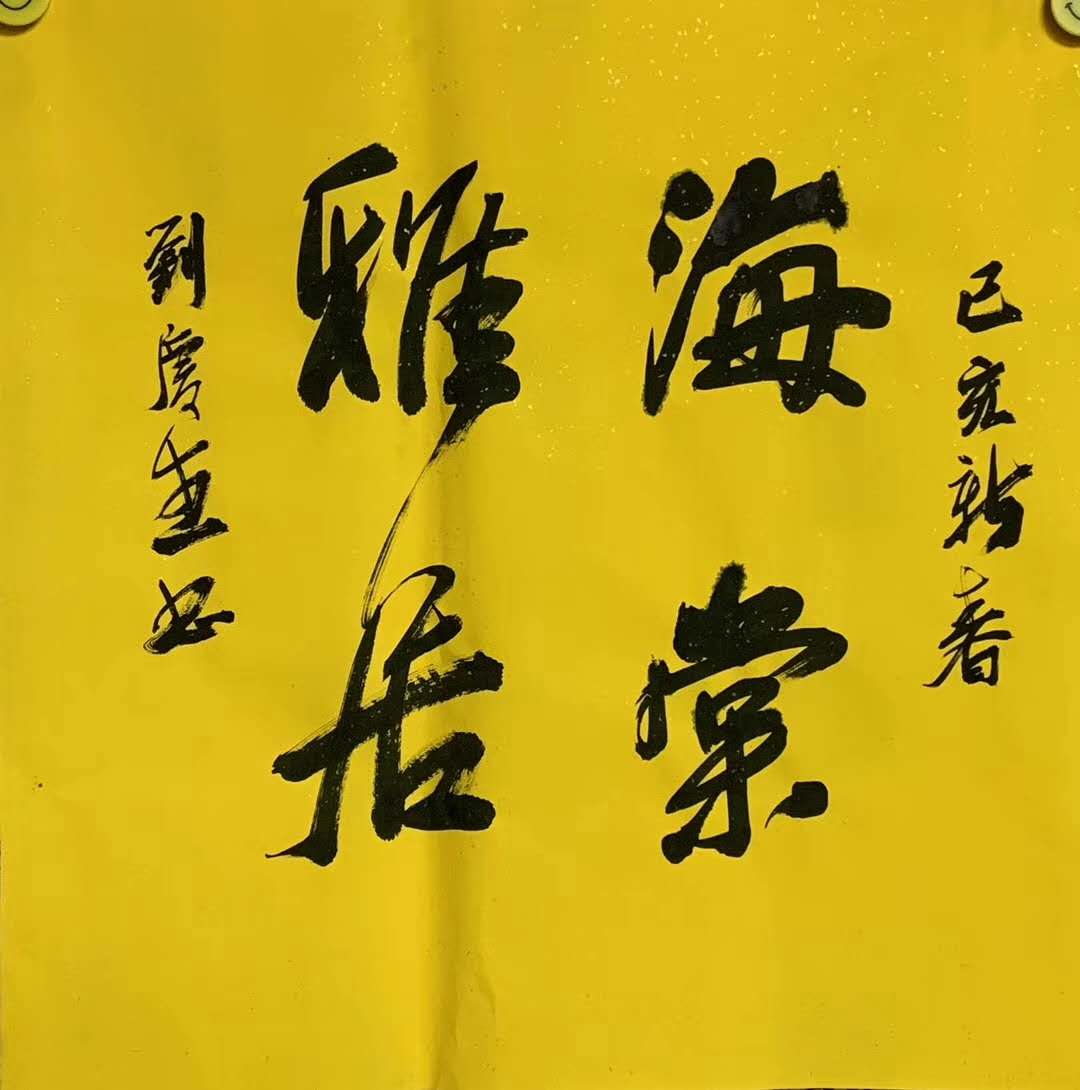 己亥新春
海棠
雅居
劉慶生书